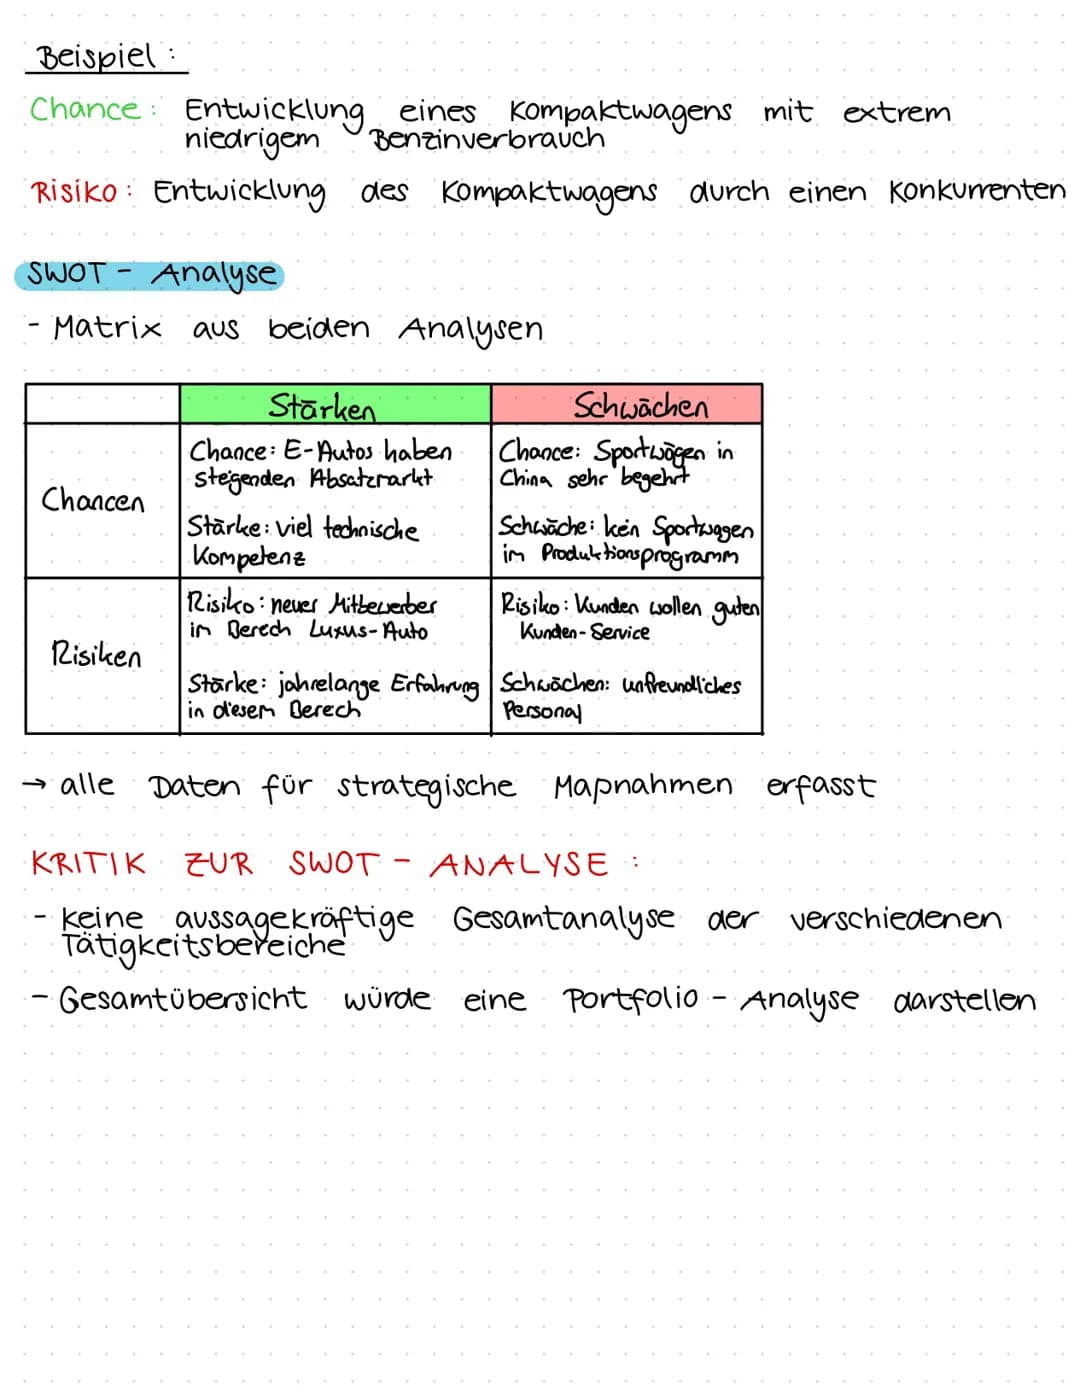 Beispiel :
Chance : Entwicklung eines Kompaktwagens mit extrem
niedrigem Benzinverbrauch
Risiko : Entwicklung des Kompaktwagens durch einen Konkurrenten
SWOT - Analyse
- Matrix aus beiden Analysen
Stärken Schwächen
Chancen
Chance: E-Autos haben
steigenden Absatzmarkt
Stärke: viel technische
Kompetenz
Chance: Sportwägen in
China sehr begehrt
Schwäche: kein Sportwagen
im Produktionsprogramm
Risiken
Risiko: neuer Mitbewerber
im Bereich Luxus-Auto
Stärke: jahrelange Erfahrung
in diesem Bereich
Risiko: Kunden wollen guten
Kunden-Service
Schwächen: unfreundliches
Personal
→ alle Daten für strategische Maßnahmen erfasst
KRITIK ZUR SWOT - ANALYSE :
- keine aussagekräftige Gesamtanalyse der verschiedenen
Tätigkeitsbereiche
- Gesamtübersicht würde eine Portfolio - Analyse darstellen